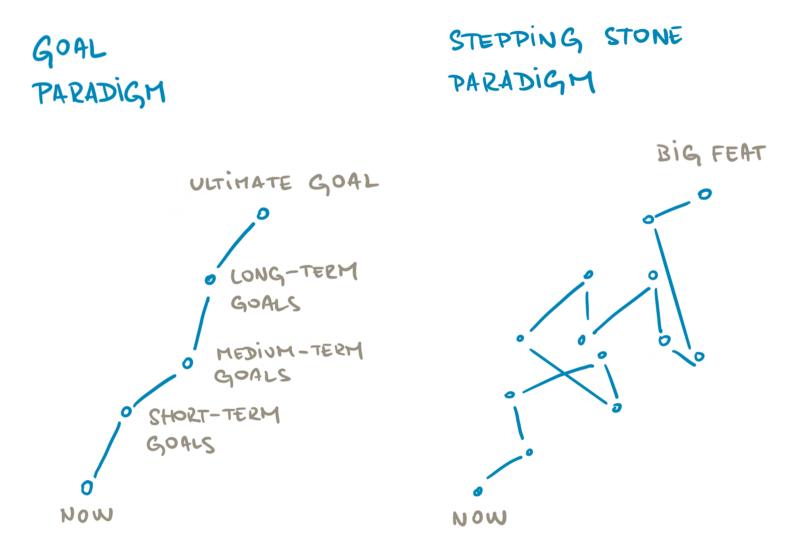 GOAL
PARADIGM
ULTIMATE GOAL
LONG-TERM
GOALS
MEDIUM-TERM
GOALS
SHORT-TERM
GOALS
NOW
STEPPING STONE
PARADIGM
BIG FEAT
NOW